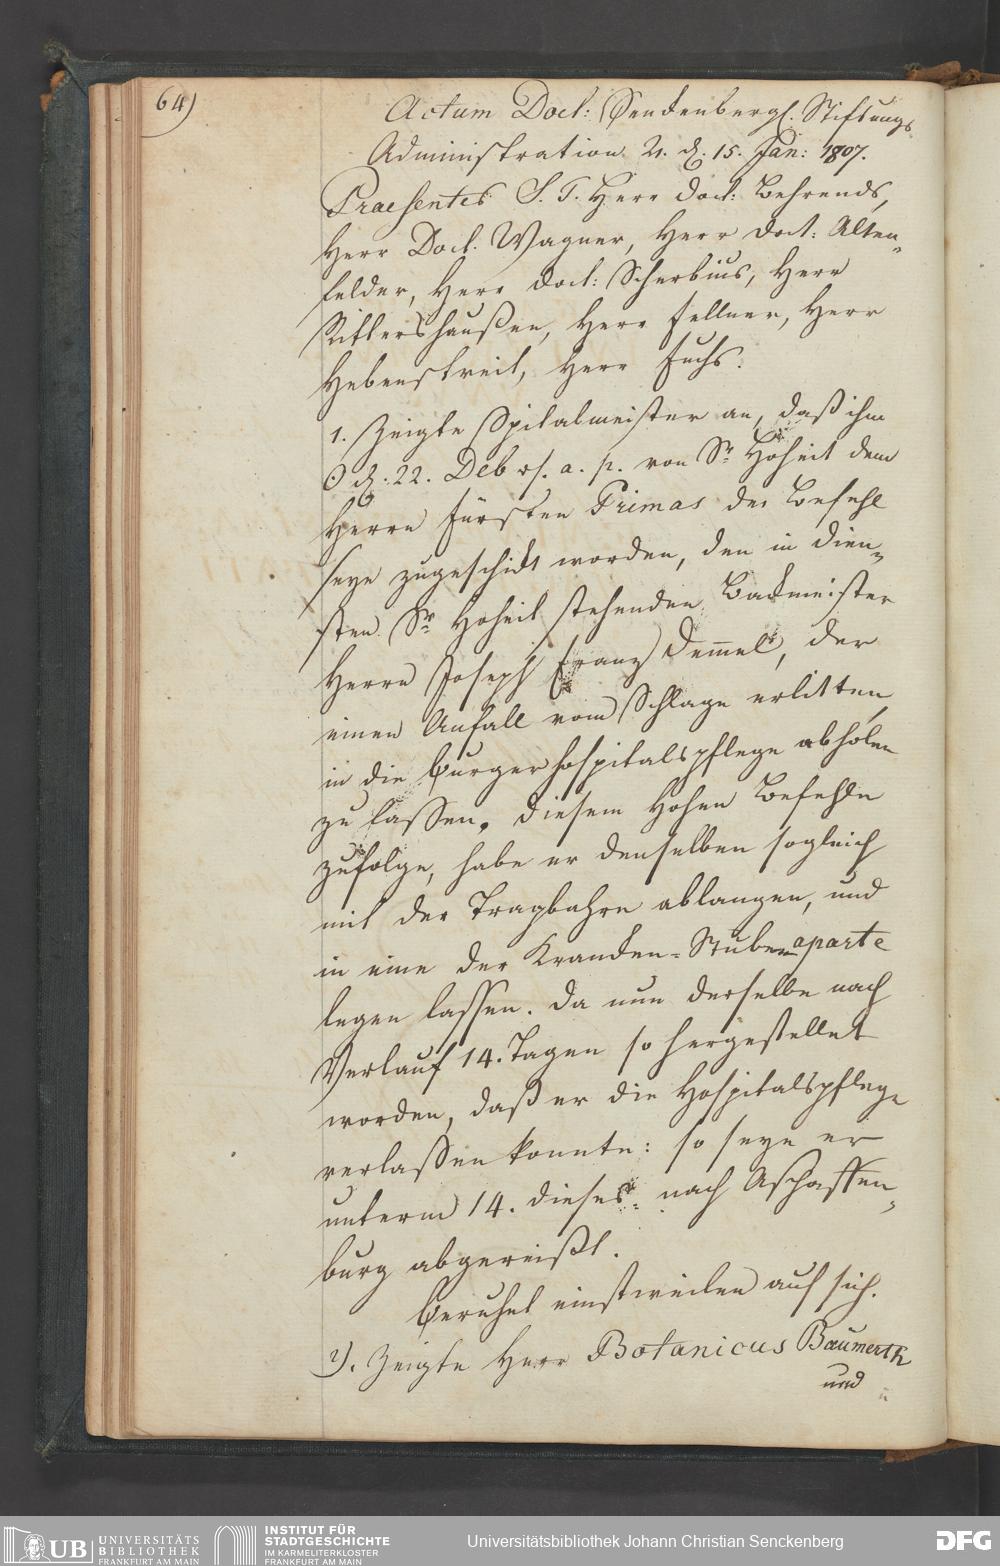 64)
Actum Doct: Senckenbergl. Stiftungs
Administration ♃. d. 15. Jan: 1807.
Praesentes S. T. Herr Doct: Behrends,
Herr Doct. Wagner, Herr Doct: Alten„
felder, Herr Doct: Scherbius, Herr
Rittershaußen, Herr Fellner, Herr
Hebenstreit, Herr Fuchs.
1. Zeigte Spitalmeister an, daß ihm
d. 22. Deb a. p. von Sr Hoheit dem
Herrn Fürsten Primas der Befehl
seye zugeschickt worden, den in Dien„
sten Sr Hoheit stehenden Backmeister
Herrn Joseph Franz Dem̄el, der
einen Anfall vom Schlage erlitten,
in die Burgerhospitalspflege abholen
zu lassen. Diesem Hohen Befehle
zufolge, habe er denselben sogleich
mit der Tragbahre ablangen, und
in eine der Krancken-Stuben aparte
legen lassen. Da nun derselbe nach
Verlauf 14. Tagen so hergestellet
worden, daß er die Hospitalspflege
verlassen konnte: so seye er
unterm 14. dieses nach Aschaffen„
burg abgereißt.
Beruhet einstweilen auf sich.
2). Zeigte Herr Botanicus Baumerth
und
UB UNIVERSITÄTS
BIBLIOTHEK
FRANKFURT AM MAIN
INSTITUT FÜR
STADTGESCHICHTE
IM KARMELITERKLOSTER
FRANKFURT AM MAIN
Universitätsbibliothek Johann Christian Senckenberg
DFG